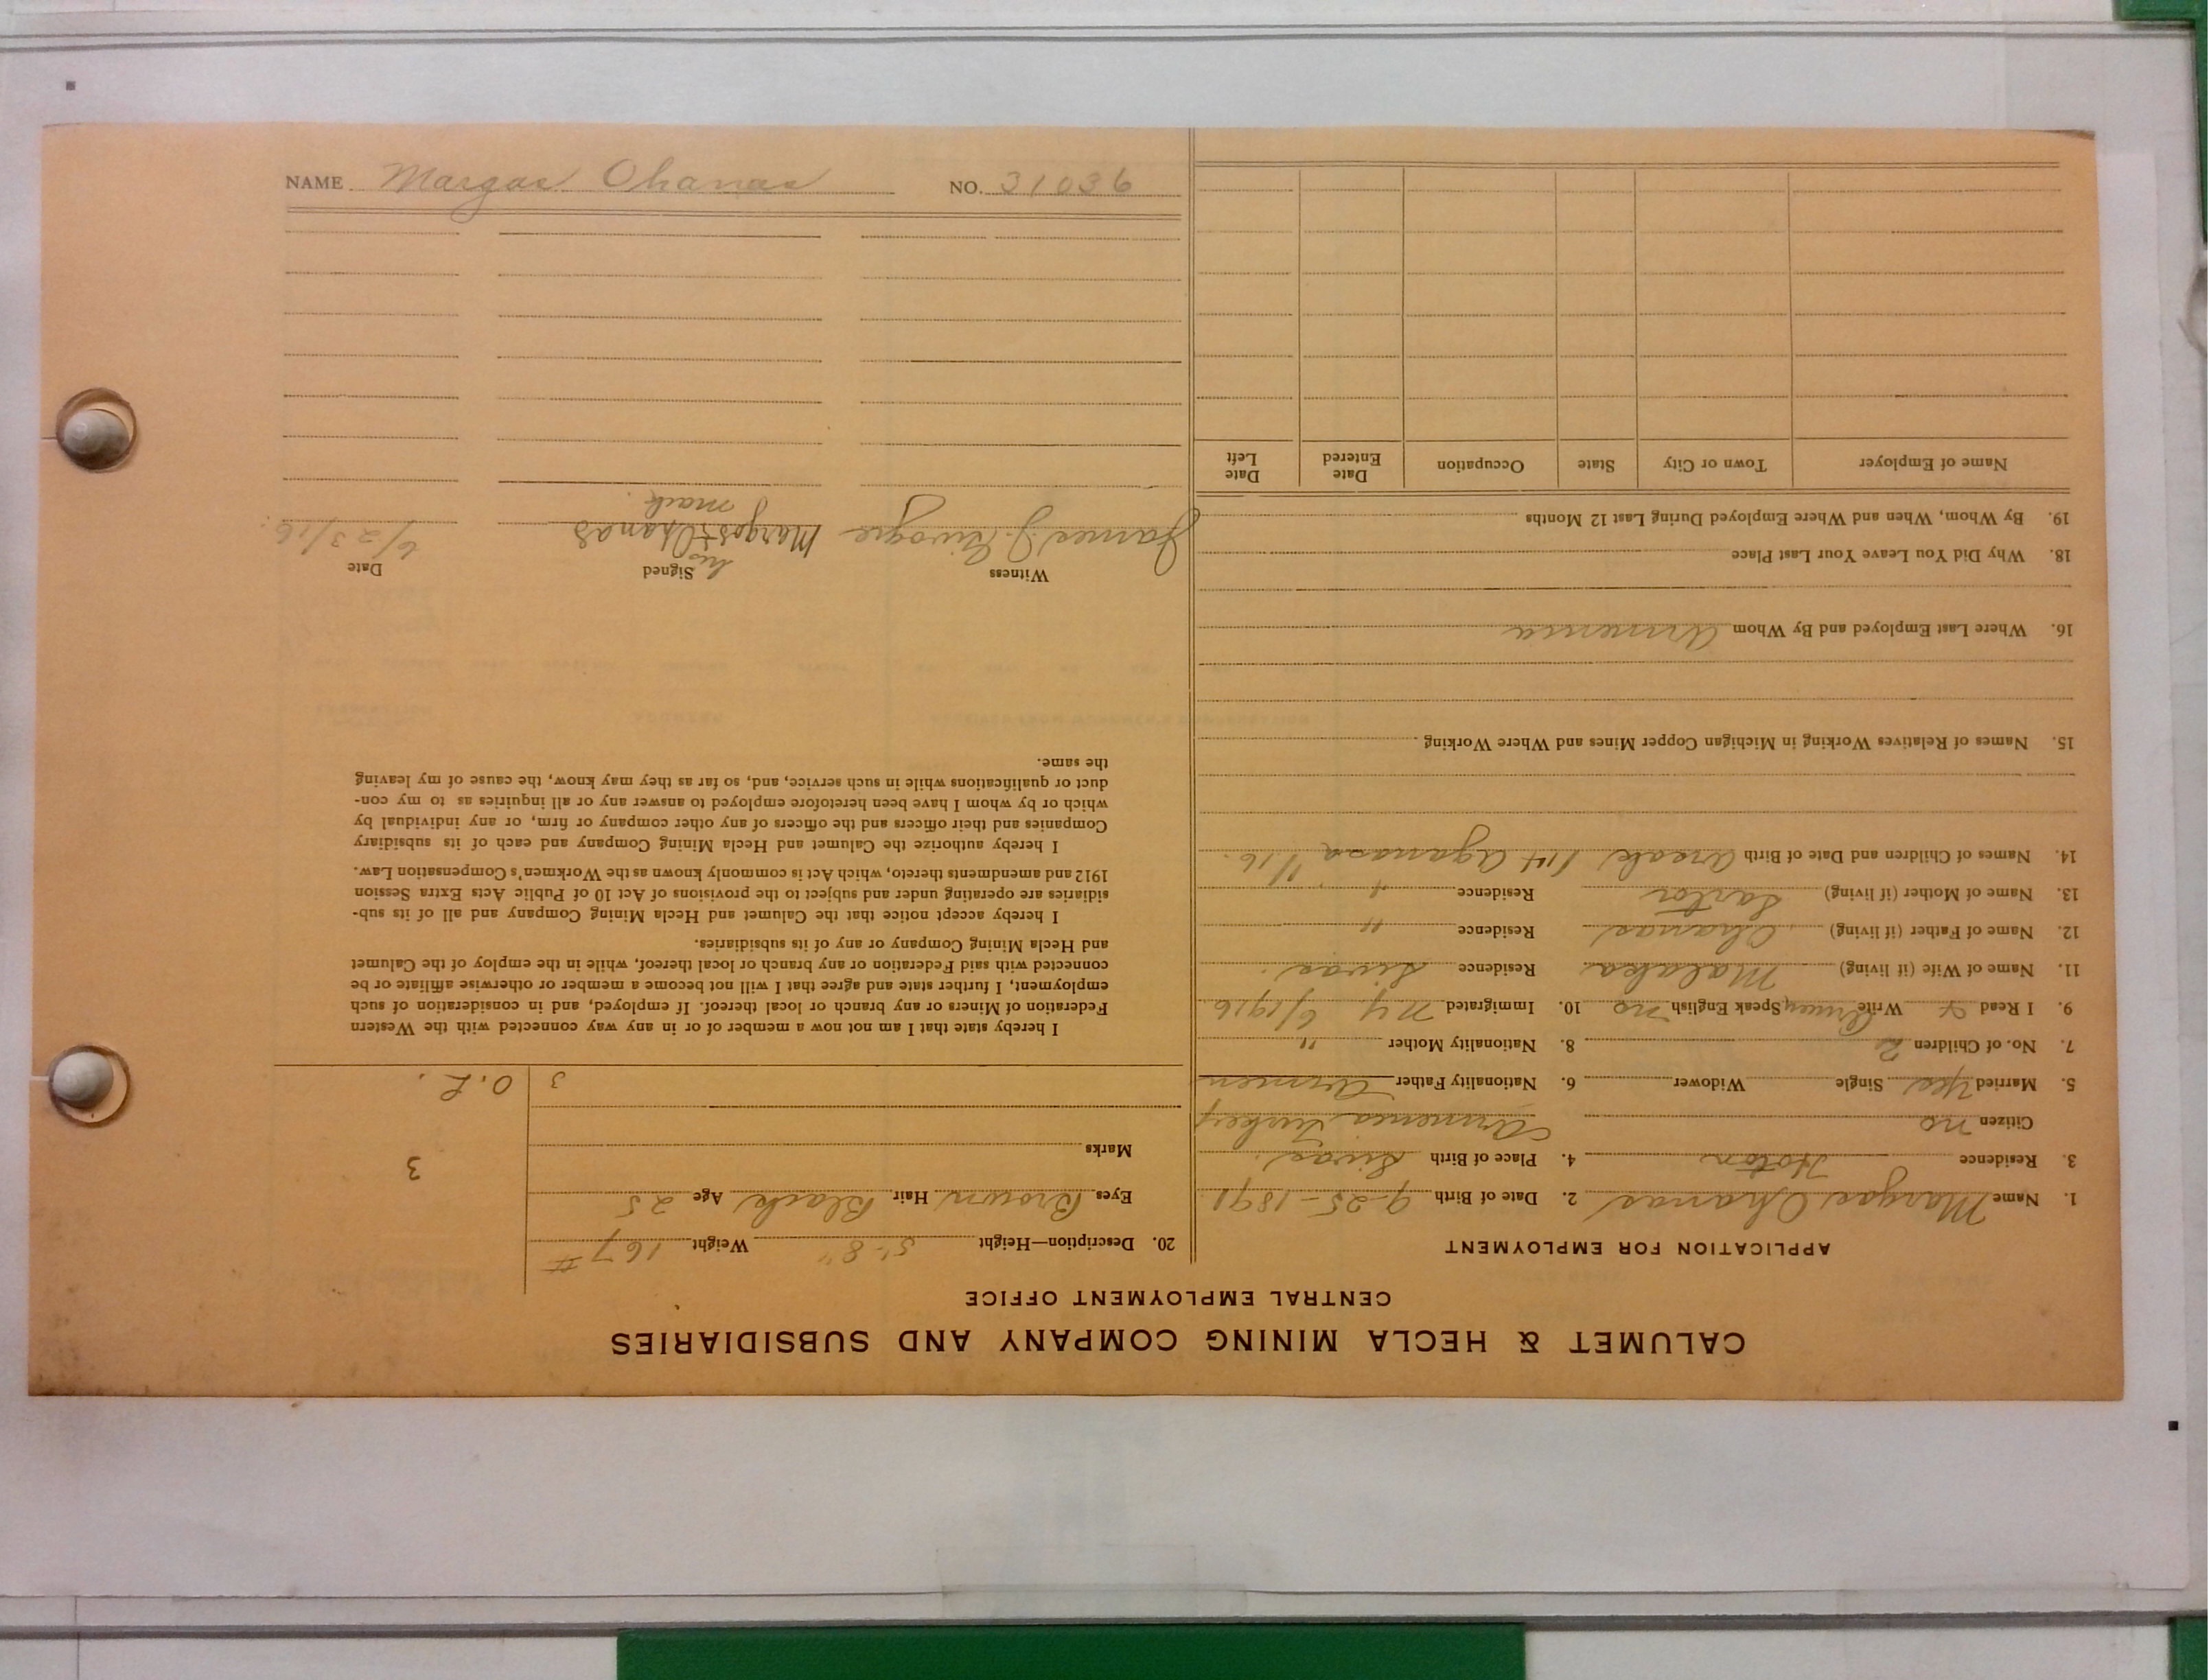 CALUMET & HECLA MINING COMPANY AND SUBSIDIARIES
CENTRAL EMPLOYMENT OFFICE
APPLICATION FOR EMPLOYMENT
1. Name Margas Ohanas 2. Date of Birth 9-25-1891
3. Residence Hoton 4. Place of Birth Sivas
Citizen no Armenia Turkey
5. Married Yes Single Widower 6. Nationality Father Armen
7. No. of Children 2 8. Nationality Mother "
9. I Read & Write Armen Speak English no 10. Immigrated NY 6/1916
11. Name of Wife (if living) Malaka Residence Sivas
12. Name of Father (if living) Ohanas Residence "
13. Name of Mother (if living) Sarton Residence "
14. Names of Children and Date of Birth 1/14 Aganasa 1/16.
15. Names of Relatives Working in Michigan Copper Mines and Where Working
16. Where Last Employed and By Whom Armenia
18. Why Did You Leave Your Last Place
19. By Whom, When and Where Employed During Last 12 Months
Name of Employer Town or City State Occupation Date Entered Date Left
20. Description—Height 5'-8" Weight 167 #
Eyes Brown Hair Black Age 25
Marks
3
3
O.L.
I hereby state that I am not now a member of or in any way connected with the Western
Federation of Miners or any branch or local thereof. If employed, and in consideration of such
employment, I further state and agree that I will not become a member or otherwise affiliate or be
connected with said Federation or any branch or local thereof, while in the employ of the Calumet
and Hecla Mining Company or any of its subsidiaries.
I hereby accept notice that the Calumet and Hecla Mining Company and all of its sub-
sidiaries are operating under and subject to the provisions of Act 10 of Public Acts Extra Session
1912 and amendments thereto, which Act is commonly known as the Workmen's Compensation Law.
I hereby authorize the Calumet and Hecla Mining Company and each of its subsidiary
Companies and their officers and the officers of any other company or firm, or any individual by
which or by whom I have been heretofore employed to answer any or all inquiries as to my con-
duct or qualifications while in such service, and, so far as they may know, the cause of my leaving
the same.
Witness Signed Date
his
James J. Margos + Ohanas 6/23/16.
mark.
NAME Margas Ohanas NO. 31036